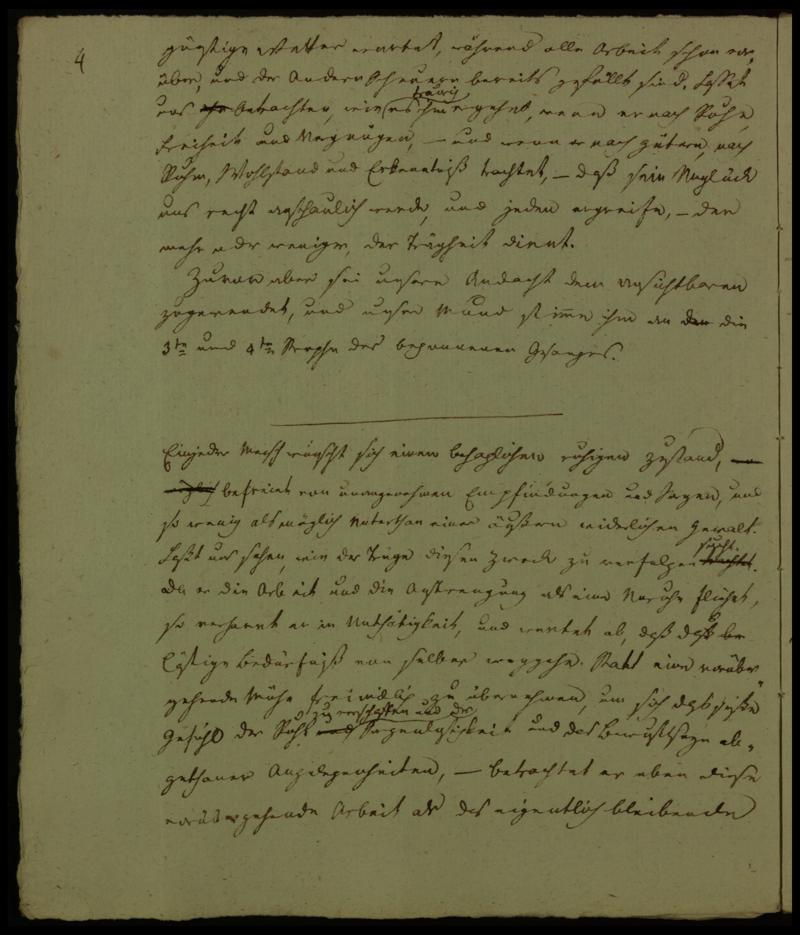 4
günstige Wetter erwartet, während alle Arbeit schon vor,
über, und der Andern Scheuern bereits gefüllt sind. Lasset
uns betrachten, wie traurig es ihm ergehet, wenn er nach Ruhe,
Freiheit und Vergnügen, — und wenn er nach Gütern, nach
Ruhm, Wohlstand und Erkenntniß trachtet, — daß sein Unglück
uns recht anschaulich werde, und jeden ergreife, — der
mehr oder weniger, der Trägheit dient.
Zuvor aber sei unsere Andacht dem unsichtbaren
zugewendet, und unser Mund stimme ihm an die
3te und 4te Strophe des begonnenen Gesanges.
Ein jeder Mensch wünscht sich einen behaglichen ruhigen Zustand,
befreiet von unangenehmen Empfindungen und Sorgen, und
so wenig als möglich unterthan einer äußern widerlichen Gewalt.
Laßt uns sehen, wie der Träge diesen Zweck zu verfolgen sucht.
Da er die Arbeit und die Anstrengung als eine Unruhe fliehet,
so verharret er in Unthätigkeit, und wartet ab, daß das be
lästige Bedürfniß von selber weggehe. Statt eine vorüber
gehende Mühe freiwillig zu übernehmen, um sich das süße
Gefühl der Ruhe zu verschaffen und der Sorgenlosigkeit und das Bewußtseyn ab,
gethaner Angelegenheiten, — betrachtet er eben diese
vorübergehende Arbeit als das eigentlich bleibende